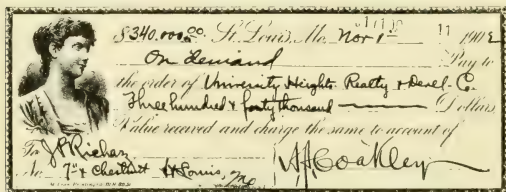 $340.000.00 St. Louis, Mo. Nov 1st 190
On demand Pay to
the order of University Heights Realty & Devel. Co.
Three hundred & forty thousand Dollars
Value received and charge the same to account of
To J P Richey
No. 7th & Chestnut St Louis, Mo
H Coakley